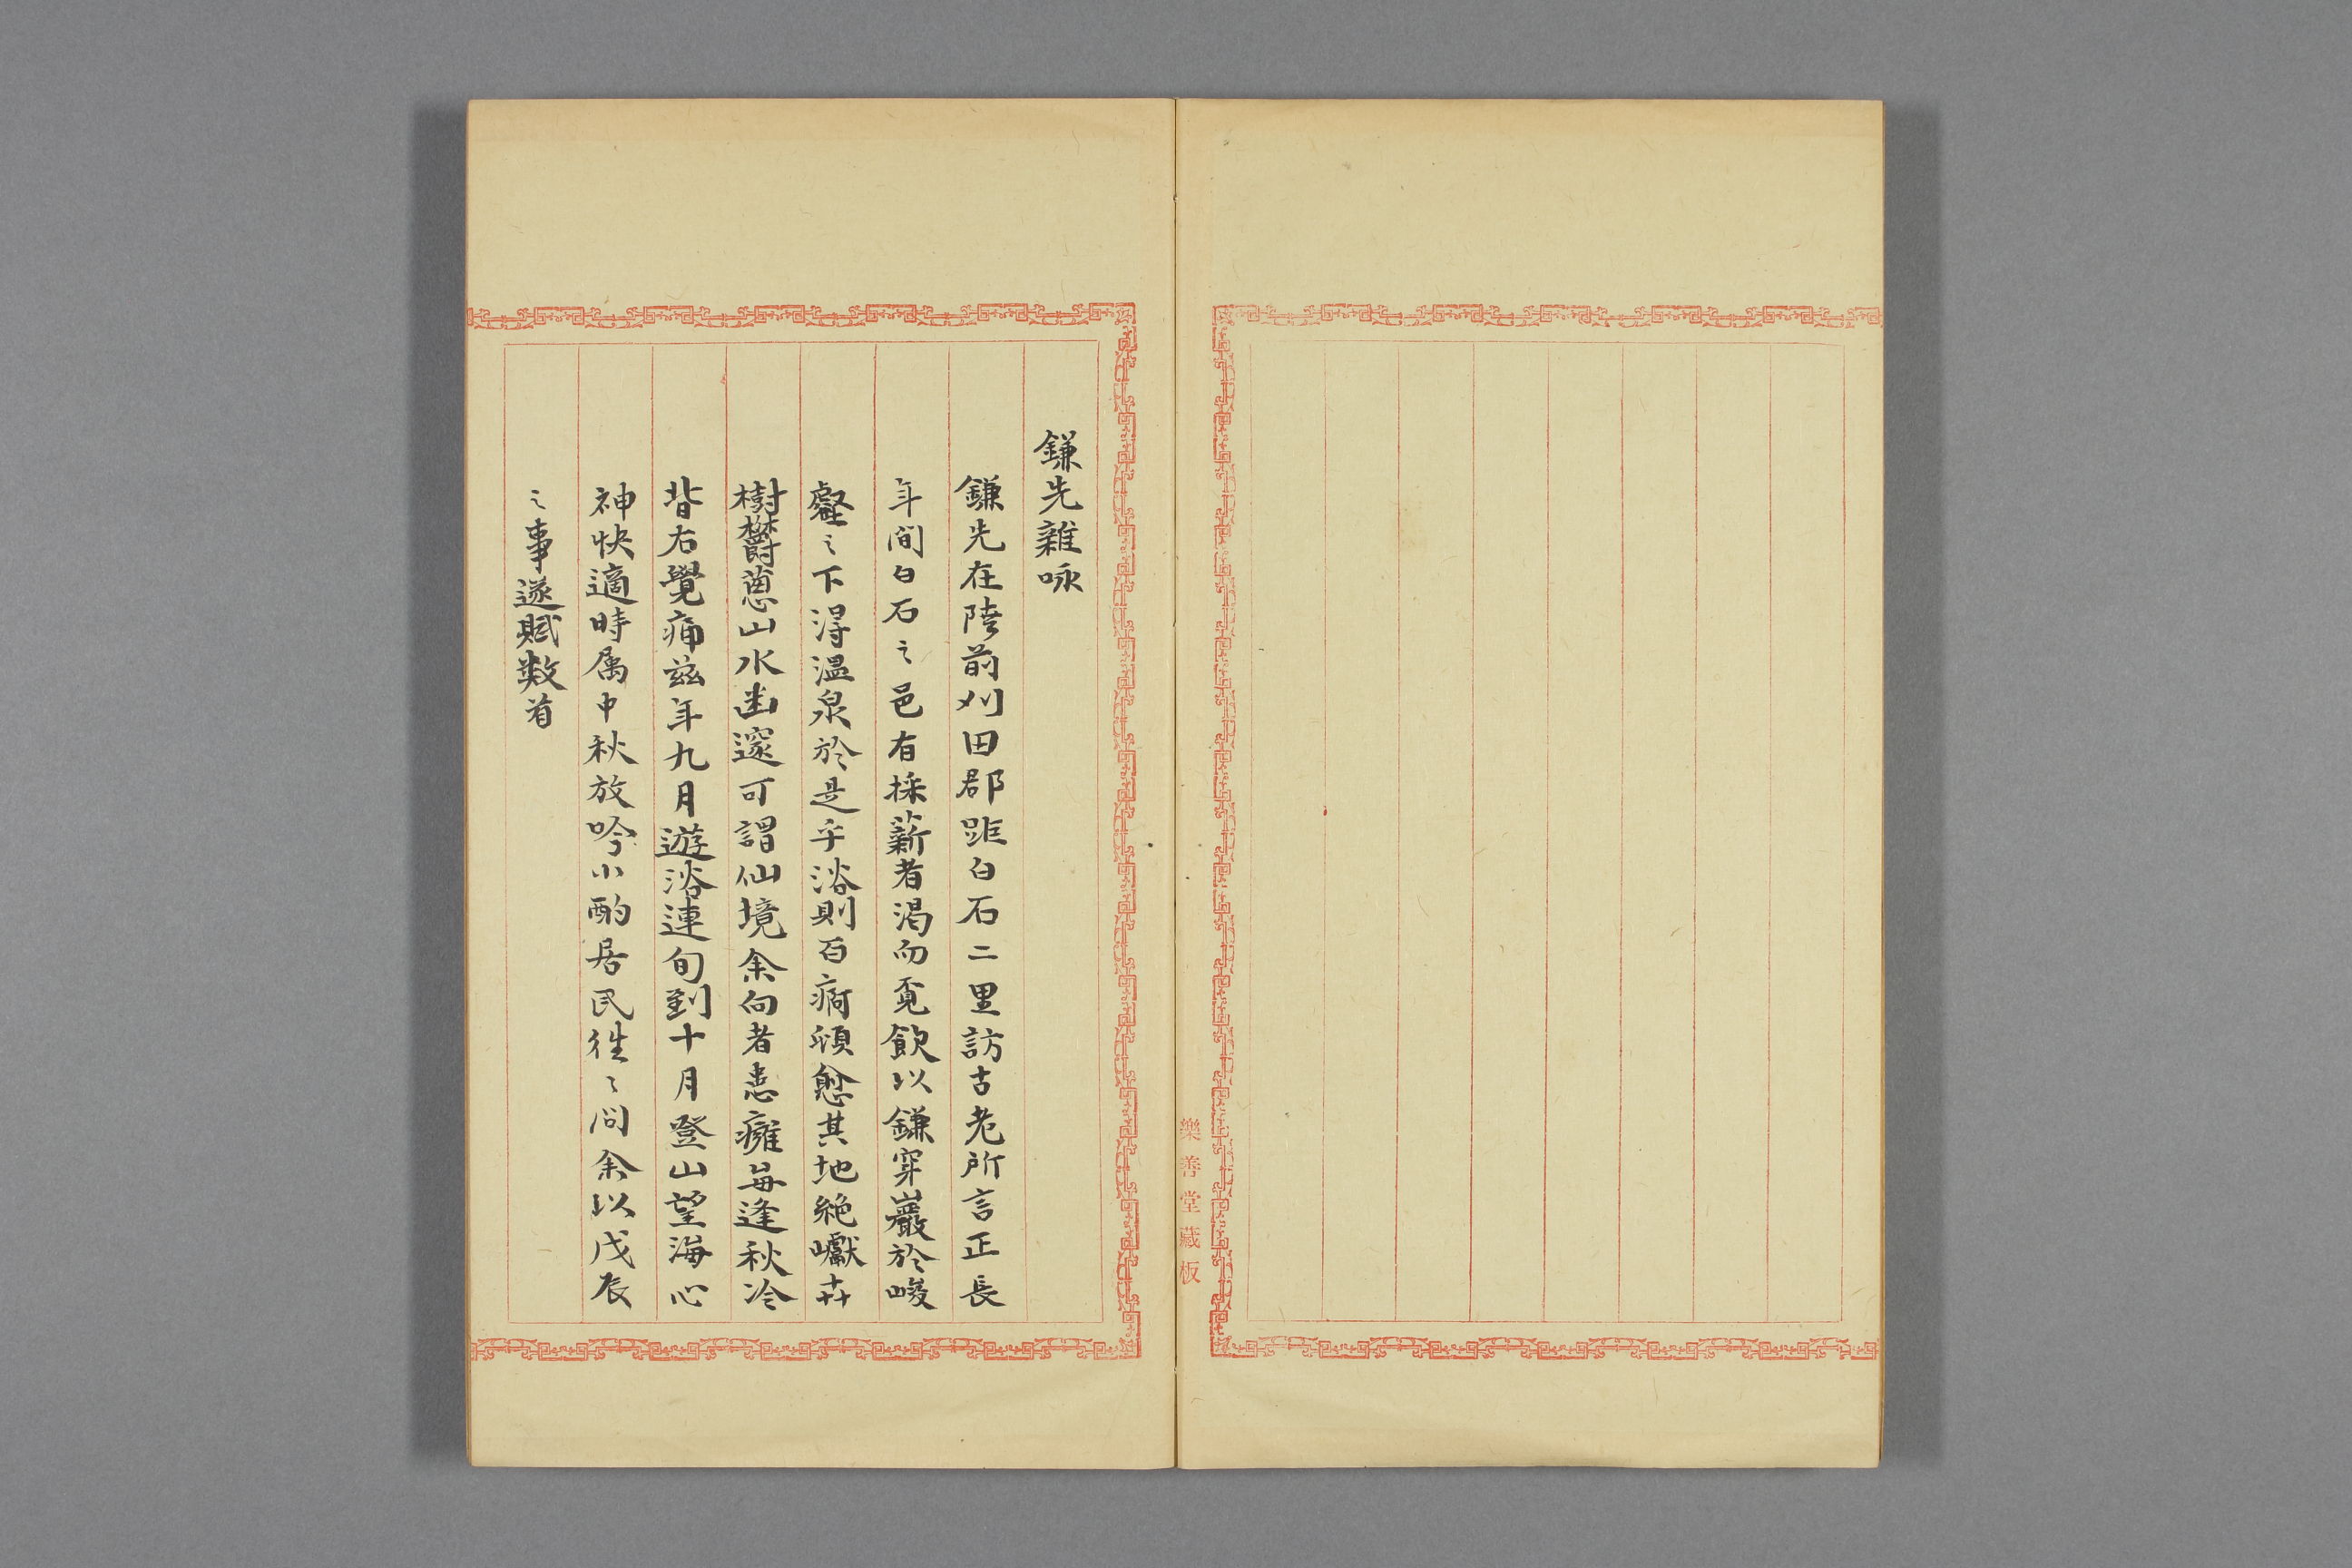 鎌先雜咏
鎌先在陸前刈田郡距白石二里訪古老所言正長
年间白石之邑有採薪者渴而覓飲以鎌穿巖於峻
壑之下淂温泉於是乎浴則百痾頓愈其地絶巘卉
樹欝蔥山水幽邃可謂仙境余向者患癰每逢秋冷
背右覺痛茲年九月遊浴連旬到十月登山望海心
神快適時属中秋放吟小酌居民徃〻问余以戊辰
之事遂賦数首
樂善堂藏板